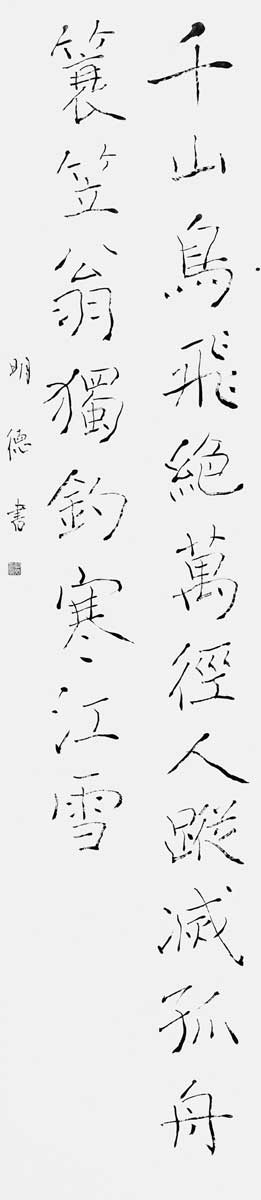 千山鳥飛絕萬徑人蹤滅孤舟
簑笠翁獨釣寒江雪
明德書